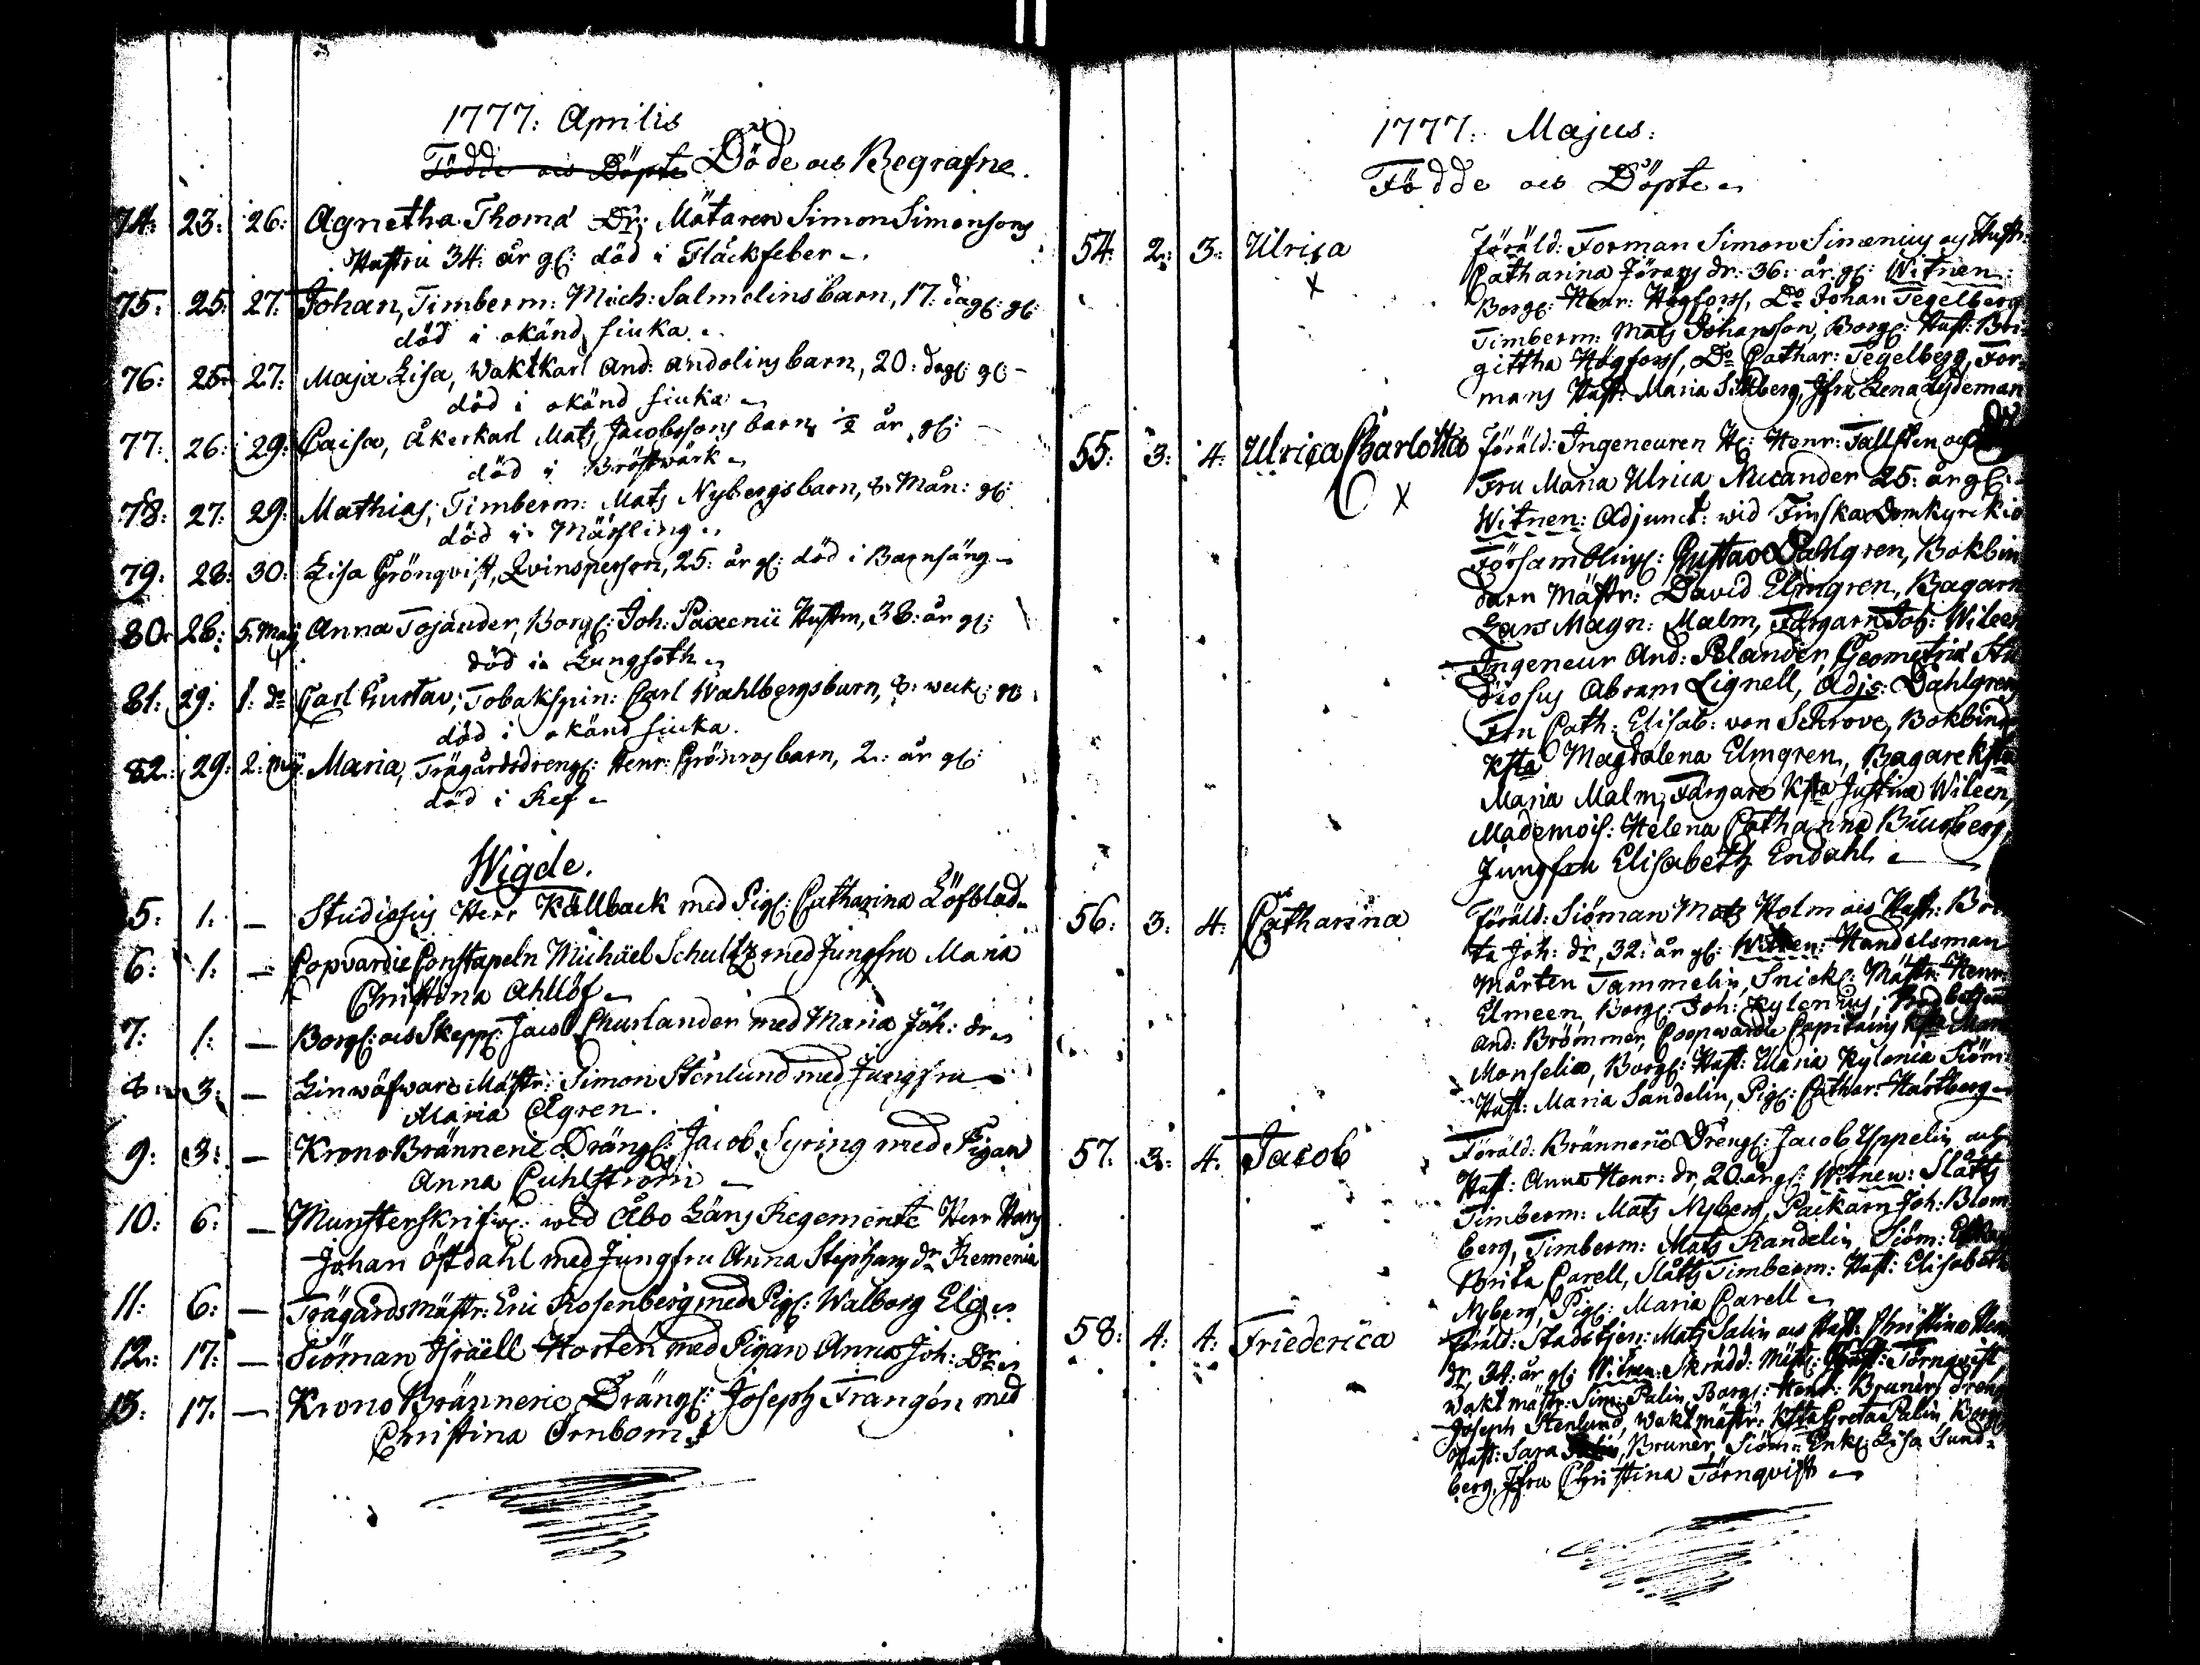 1777: Aprilis
Födde och Döpte Döde och Begrafne.
74: 23: 26: Agnetha Thomæ Dr: Mätaren Simon Simonsons
Hustru 34: år gl: död i Fläckfeber
75: 25: 27: Johan, Timberm: Mich: Salmelins barn, 17: dag: gl:
död i okänd siuka.
76: 25: 27: Maja Lisa, Waktkarl And: Andolins barn, 20: dag: gl:
död i okänd siuka
77: 26: 29: Caisa, Åkerkarl Mats Jacobssons barn, ½ år gl:
död i Bröstwärk
78: 27: 29: Mathias, Timberm: Mats Nybergs barn, 8: Mån: gl:
död i Mässling
79: 28: 30: Lisa Grönqvist, Qvinsperson, 25: år gl: död i Barnsäng
80: 28: 5: Maij Anna Tojander, Borg: Joh: Paxenii Hustru, 38: år gl:
död i Lungsoth
81: 29: 1: do Carl Gustav, Tobakspin: Carl Wahlbergs barn, 8: weck: gl:
död i okänd siuka.
82: 29: 2: Maij Maria, Trägårdsdreng: Henr: Grönros barn, 2: år gl:
död i Ref
Wigde.
5: 1: — Studiosus Herr Källback med Pig: Catharina Löfblad
6: 1: — Copvardie Constapeln Michäel Schultz med Jungfru Maria
Christina Ahllöf
7: 1: — Borg: och Skepp: Jacob med Maria Joh: dr
8: 3: — Linwäfware Mästr: Simon Stenlund med Jungfru
Maria Ågren.
9: 3: — Krono Brännerie Dräng: Jacob Syring med Pigan
Anna
10: 6: — Munsterskrifw: wid Åbo Läns Regemente Herr Hans
Johan Östdahl med Jungfru Anna Stephans dr Remenia
11: 6: — Trägårds Mästr: Eric Rosenberg med Pig: Walborg Elig
12: 17: — Siöman Israëll Hortén med Pigan Anna Joh: Dr
13: 17: — Krono Brännerie Dräng: Joseph Frangén med
Christina Örnbom
1777: Majus:
Födde och Döpte
54: 2: 3: Ulrica Föräld: Forman Simon Simenius och Hustr:
x Catharina Jörans dr: 36: år gl: Witnen:
Borg: Henr: Högforss, Do Johan Tegelberg
Timberm: Mats Johansson, Borg: Hust: Bri-
gittha Högforss, Do Cathar: Tegelberg, For-
mans Hust: Maria Sittberg, Jfru Lena Lydeman
55: 3: 4: Ulrica Charlotta Föräld: Ingeneuren H: Henr: Tallsten och
x Fru Maria Ulrica Nucander 25: år gl:
Witnen: Adjunct: wid Finska Domkyrkio
Församling: Gustav Dahlgren, Bokbin
darn Mästr: David Elmgren, Bagarn
Lars Magn: Malm, Färgarn Joh: Wileen
Ingeneur And: Polander, Geometriæ Stu
diosus Abram Lignell, Adjs: Dahlgren
Fru Cath: Elisab: von Schrove, Bokbind
Ksta Magdalena Elmgren, Bagare Ksta
Maria Malm, Färgare Ksta Justina Wileen,
Mademois: Helena Catharina Biugberg,
Jungfru Elisabeth Endahl
56: 3: 4: Catharina Föräld: Siöman Mats Holm och Hustr: Bri
ta Joh: dr, 32: år gl: Witnen: Handelsman
Mårten Tammelin, Snick: Mästr: Henr:
Elmeen, Borg: Joh: Kylenius,
And: Brömmer, Coopvardie Capitains Ksta Maria
Monselia, Borg: Hust: Maria Kylenia Siöm:
Hust: Maria Sandelin, Pig: Cathar: Hartberg
57: 3: 4: Jacob Föräld: Brännerie Dreng: Jacob Uppelin och
Hust: Anna Henr: dr, 20: år gl: Witnen: Slåtts
Timberm: Mats Nyberg, Packarn Joh: Blom
berg, Timberm: Mats Randelin, Siöm:
Brita Carell, Slåtts Timberm: Hust: Elisabeth
Nyberg, Pig: Maria Carell
58: 4: 4: Friederica Föräld: Stadstjen: Mats Salin och Hust: Christina Hen
dr, 34: år gl: Witnen: Skrädd: Mäst: Törnqvist
Waktmästr: Sim: Palin, Borg: Henr: Bruner, Dreng
Joseph Stenlund, Waktmästr: Ksta Greta Palin, Borg:
Hust: Sara Bruner, Siöm: Enk: Lisa Sund-
berg, Jfru Christina Törnqvist